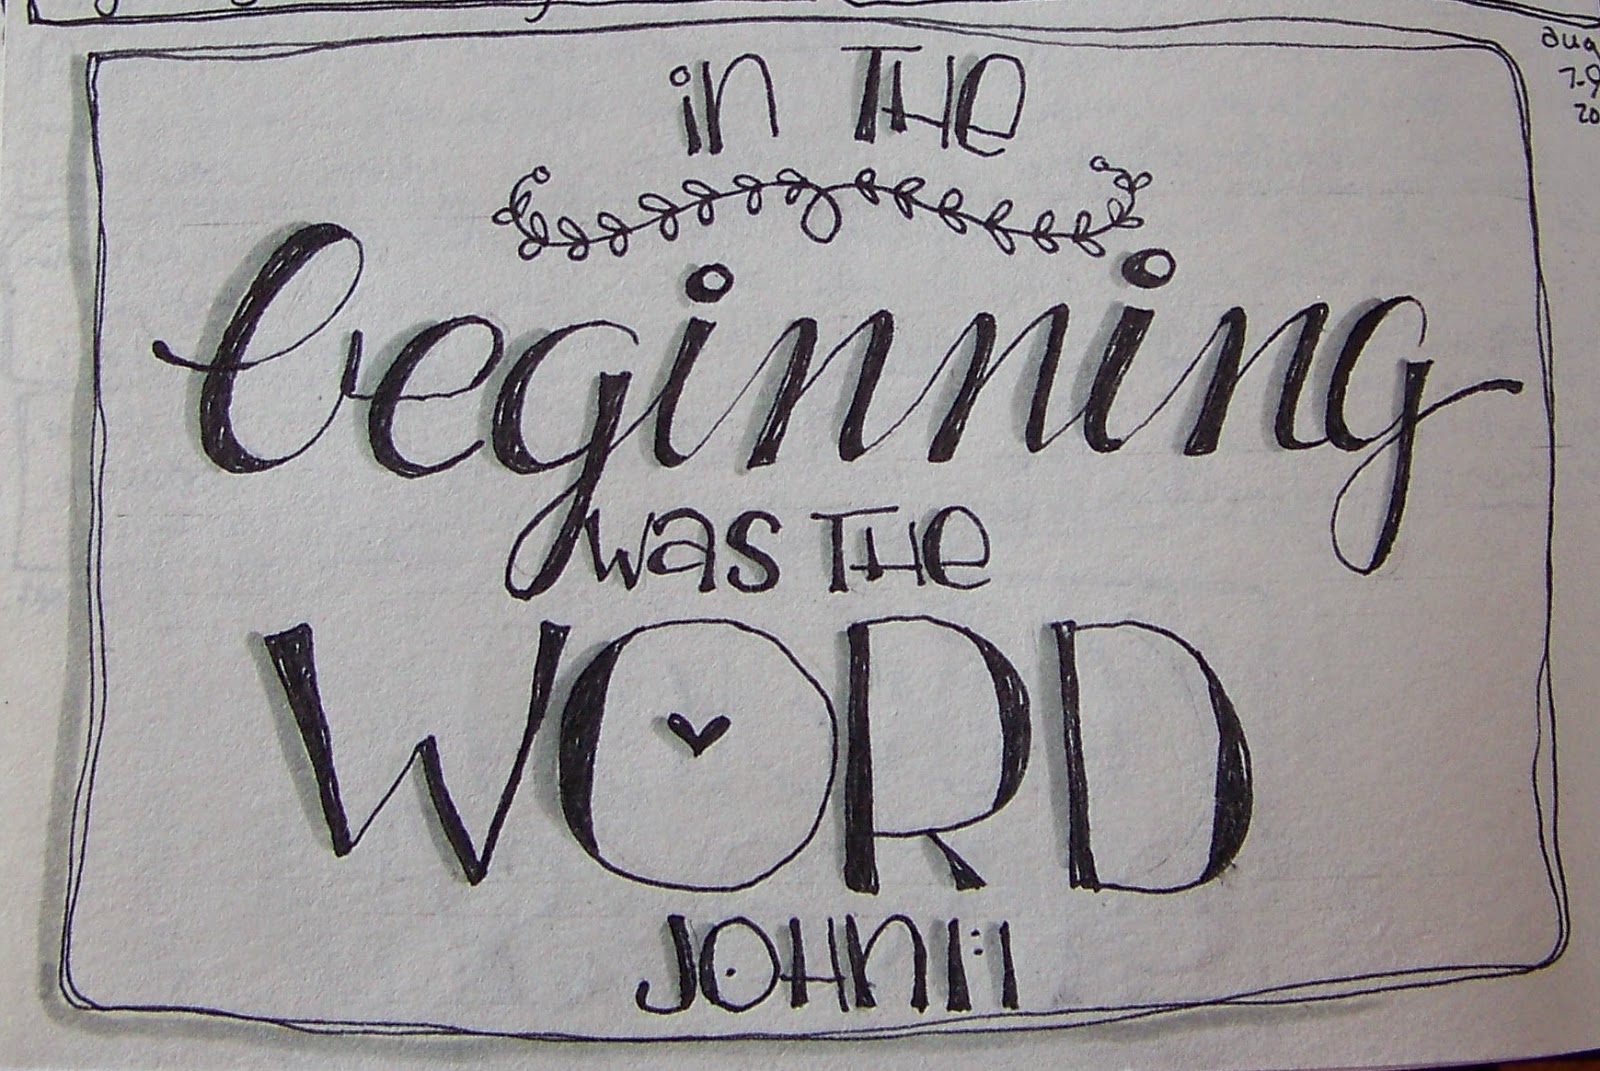 in THe
beginning
was THe
WORD
JOHN 1:1
aug
7-9
20